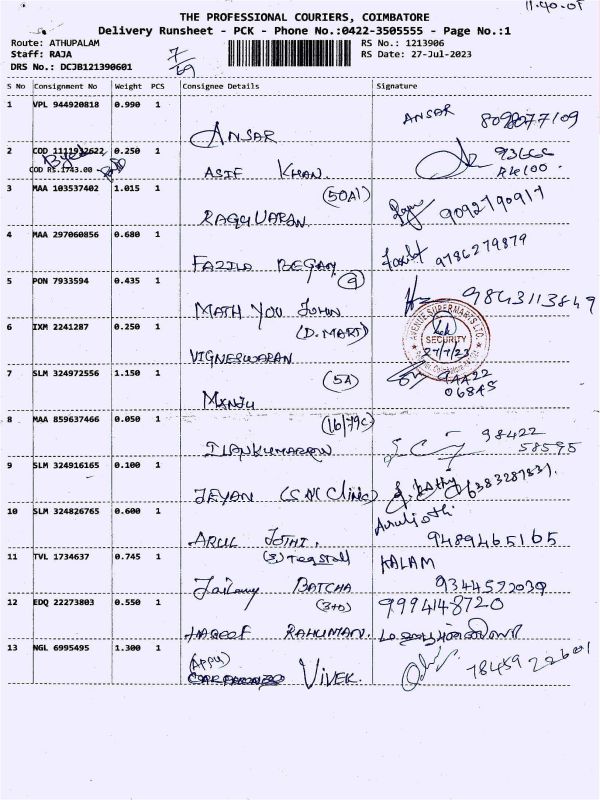 11.40.05
THE PROFESSIONAL COURIERS, COIMBATORE
Delivery Runsheet - PCK - Phone No.:0422-3505555 - Page No.:1
Route: ATHUPALAM RS No.: 1213906
Staff: RAJA 7/69 RS Date: 27-Jul-2023
DRS No.: DCJB121390601
S No Consignment No Weight PCS Consignee Details Signature
1 VPL 944920818 0.990 1 ANSAR ANSAR
2 COD 1111932622 0.250 1 93666
COD RS.1743.00 ASIF KHAN.
3 MAA 103537402 1.015 1 (50A1) 9092790917
RAGUVARAN
4 MAA 297060856 0.680 1 9786279879
FAZILA BEGAM
5 PON 7933594 0.435 1 9843113849
MATH YOU JOHN
6 IXM 2241287 0.250 1 (D.MART) AVENUE SUPERMARTS LTD.
VIGNESWARAN SECURITY
27/7/23
7 SLM 324972556 1.150 1 (5A)
MANJU 06845
8 MAA 859637466 0.050 1 (16/79C) 98422
58595
9 SLM 324916165 0.100 1
JEYAN (SNC Clinic)
10 SLM 324826765 0.600 1 Aruljothi
ARUL JOTHI. 9489465165
11 TVL 1734637 0.745 1 (3) Teastall KALAM
BATCHA 9344572039
12 EDQ 22273803 0.550 1 (3+0) 9994148720
RAHUMAN.
13 NGL 6995495 1.300 1 (APPU)
VIVEK.